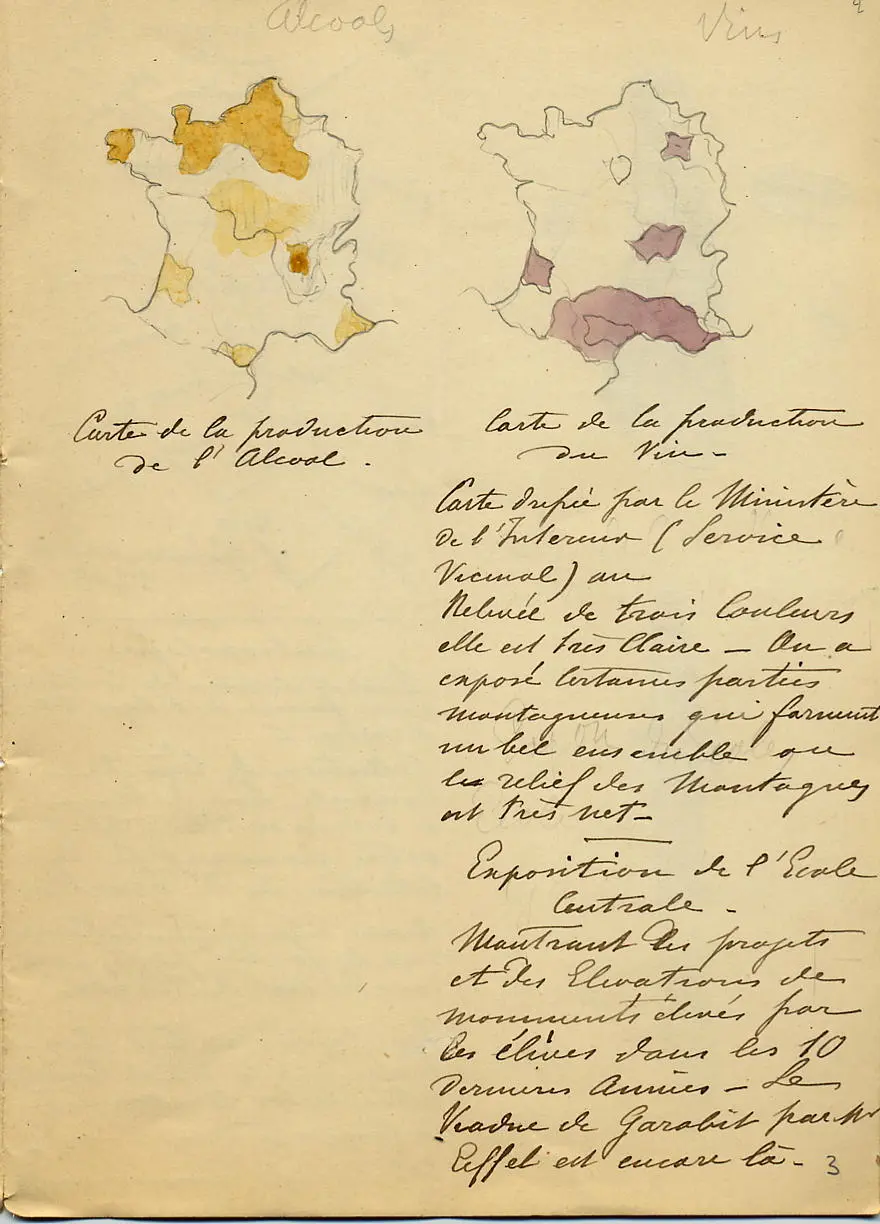 Alcools
Vins
2
Carte de la production
de l'Alcool.
Carte de la production
du Vin -
Carte dressée par le Ministère
de l'Interieur (Service
Vicinal) au
Relevée de trois Couleurs
elle est très Claire - On a
exposé Certaines parties
montagneuses qui forment
un bel ensemble ou
le relief des Montagnes
est très net -
Exposition de l'Ecole
Centrale -
Montrant Des projets
et des Elevations de
monuments élevés par
les élèves dans les 10
Dernieres Années - Le
Viaduc de Garabit par Mr
Eiffel est encore là - 3